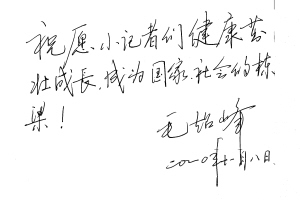 祝愿小记者们健康茁
壮成長,成为国家、社会的栋
梁！
毛始峰
二〇二〇年十一月八日